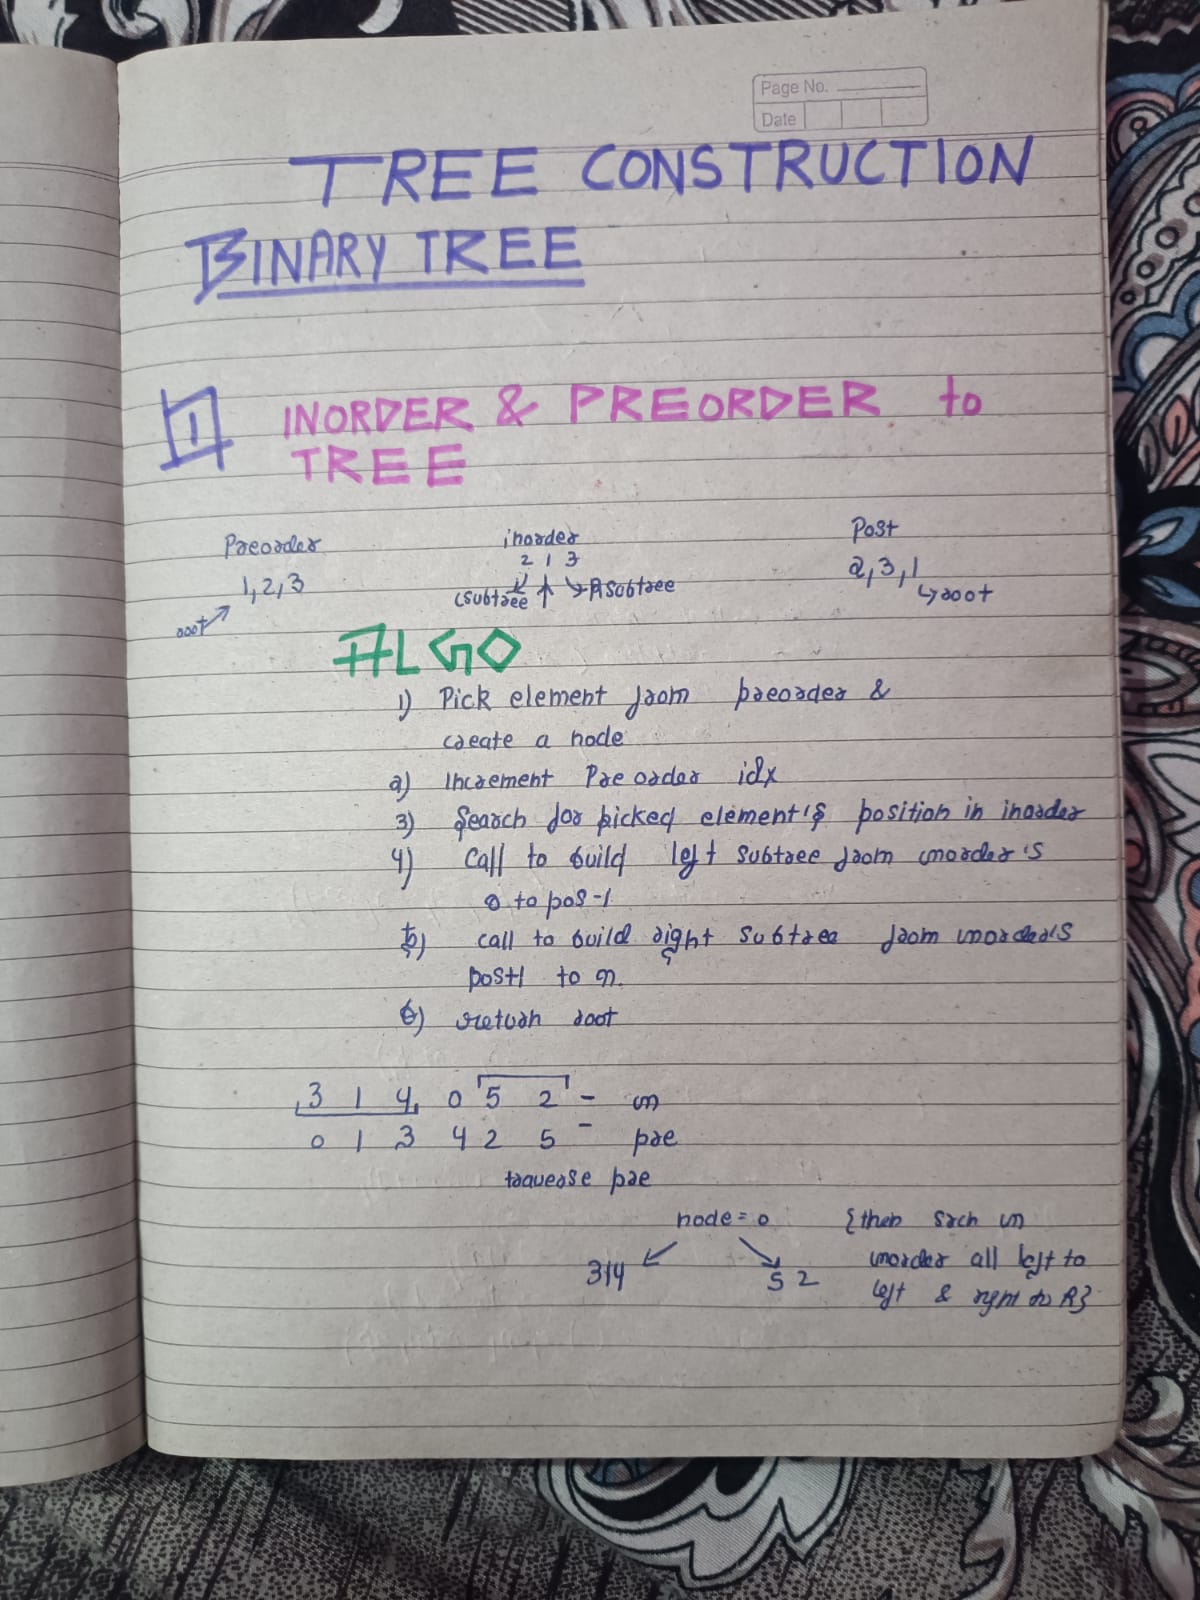 Page No.
Date
TREE CONSTRUCTION
BINARY TREE
1 INORDER & PREORDER to
TREE
Preorder inorder Post
1,2,3 2 1 3 2,3,1
root Lsubtree Rsubtree root
ALGO
1) Pick element from preorder &
create a node
2) Increment Pre order idx
3) Search for picked element's position in inorder
4) Call to build left subtree from inorder's
0 to pos-1
5) call to build right subtree from inorder's
pos+1 to n.
6) return root
3 1 4 0 5 2 - in
0 1 3 4 2 5 - pre
traverse pre
node = 0 {then srch in
314 5 2 inorder all left to
left & right to R}